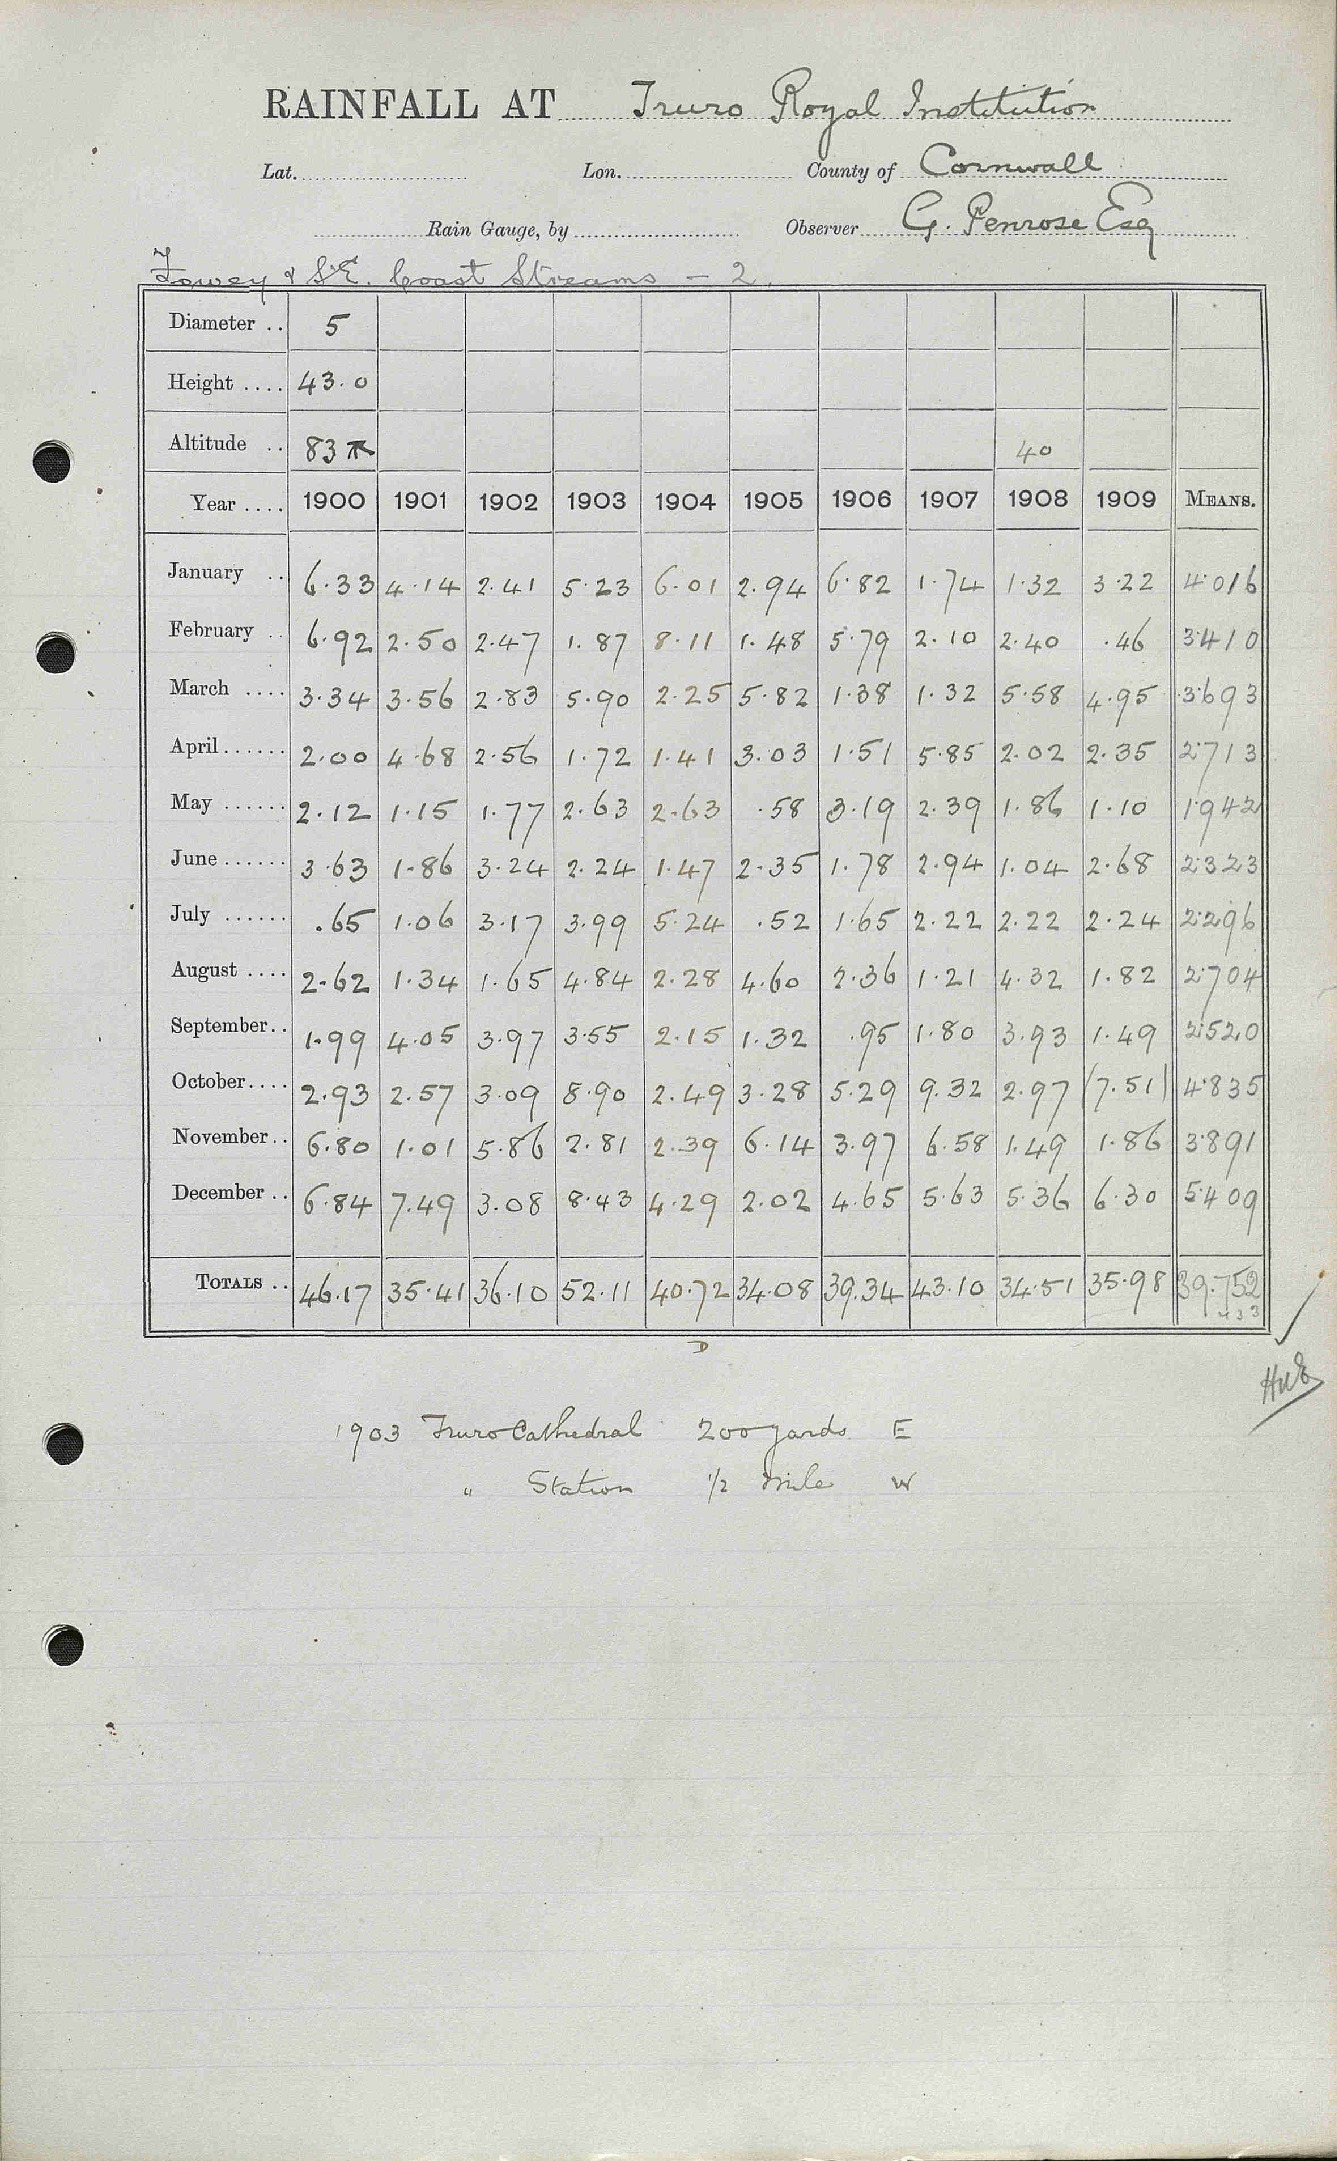 RAINFALL AT Truro Royal Institution
Lat. Lon. County of Cornwall
Rain Gauge, by Observer G. Penrose Esq
Fowey & S.E. Coast Streams - 2.
Diameter .. 5
Height .... 43.0
Altitude .. 83 40
Year .... 1900 1901 1902 1903 1904 1905 1906 1907 1908 1909 MEANS.
January .. 6.33 4.14 2.41 5.23 6.01 2.94 6.82 1.74 1.32 3.22 4.016
February .. 6.92 2.50 2.47 1.87 8.11 1.48 5.79 2.10 2.40 .46 3.410
March .... 3.34 3.56 2.83 5.90 2.25 5.82 1.38 1.32 5.58 4.95 3.693
April ...... 2.00 4.68 2.56 1.72 1.41 3.03 1.51 5.85 2.02 2.35 2.713
May ...... 2.12 1.15 1.77 2.63 2.63 .58 3.19 2.39 1.86 1.10 1.942
June ...... 3.63 1.86 3.24 2.24 1.47 2.35 1.78 2.94 1.04 2.68 2.323
July ...... .65 1.06 3.17 3.99 5.24 .52 1.65 2.22 2.22 2.24 2.296
August .... 2.62 1.34 1.65 4.84 2.28 4.60 2.36 1.21 4.32 1.82 2.704
September .. 1.99 4.05 3.97 3.55 2.15 1.32 .95 1.80 3.93 1.49 2.520
October .... 2.93 2.57 3.09 8.90 2.49 3.28 5.29 9.32 2.97 (7.51) 4.835
November .. 6.80 1.01 5.86 2.81 2.39 6.14 3.97 6.58 1.49 1.86 3.891
December .. 6.84 7.49 3.08 8.43 4.29 2.02 4.65 5.63 5.36 6.30 5.409
TOTALS .. 46.17 35.41 36.10 52.11 40.72 34.08 39.34 43.10 34.51 35.98 39.752
D
1903 Truro Cathedral 200 yards E
" Station 1/2 mile W